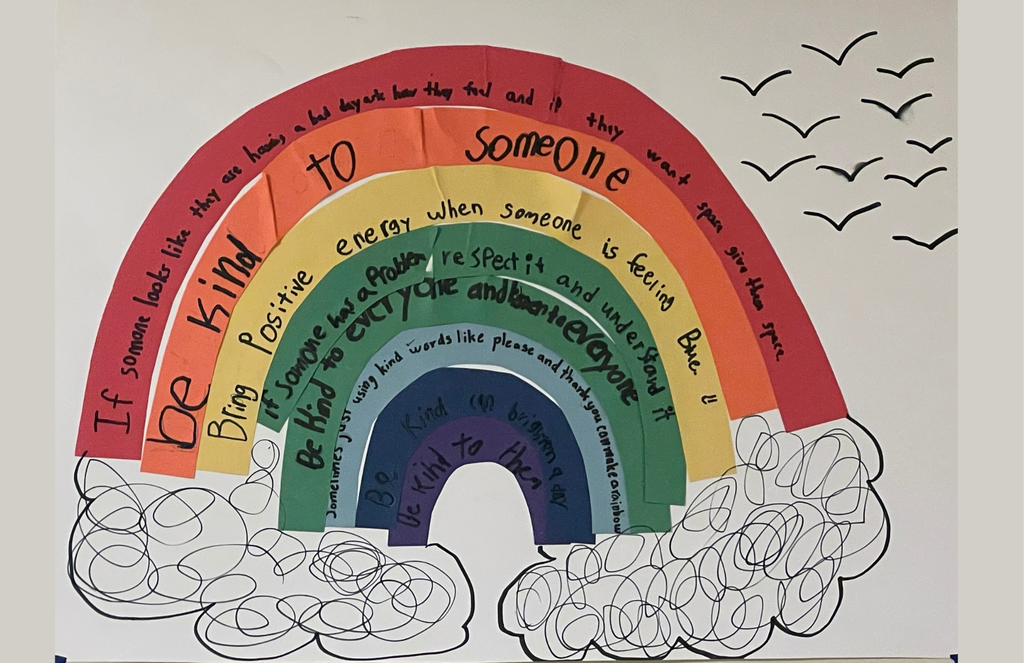 If somone looks like they are having a bad day ask how they feel and if they want space give them space.
be kind to someone
Bring Positive energy when someone is feeling Blue !!
if someone has a Problem respect it and understand it
Be kind to everyone and to everyone
Sometimes just using kind words like please and thank you can make a rainbow
Be kind can brighten a day
be kind to them